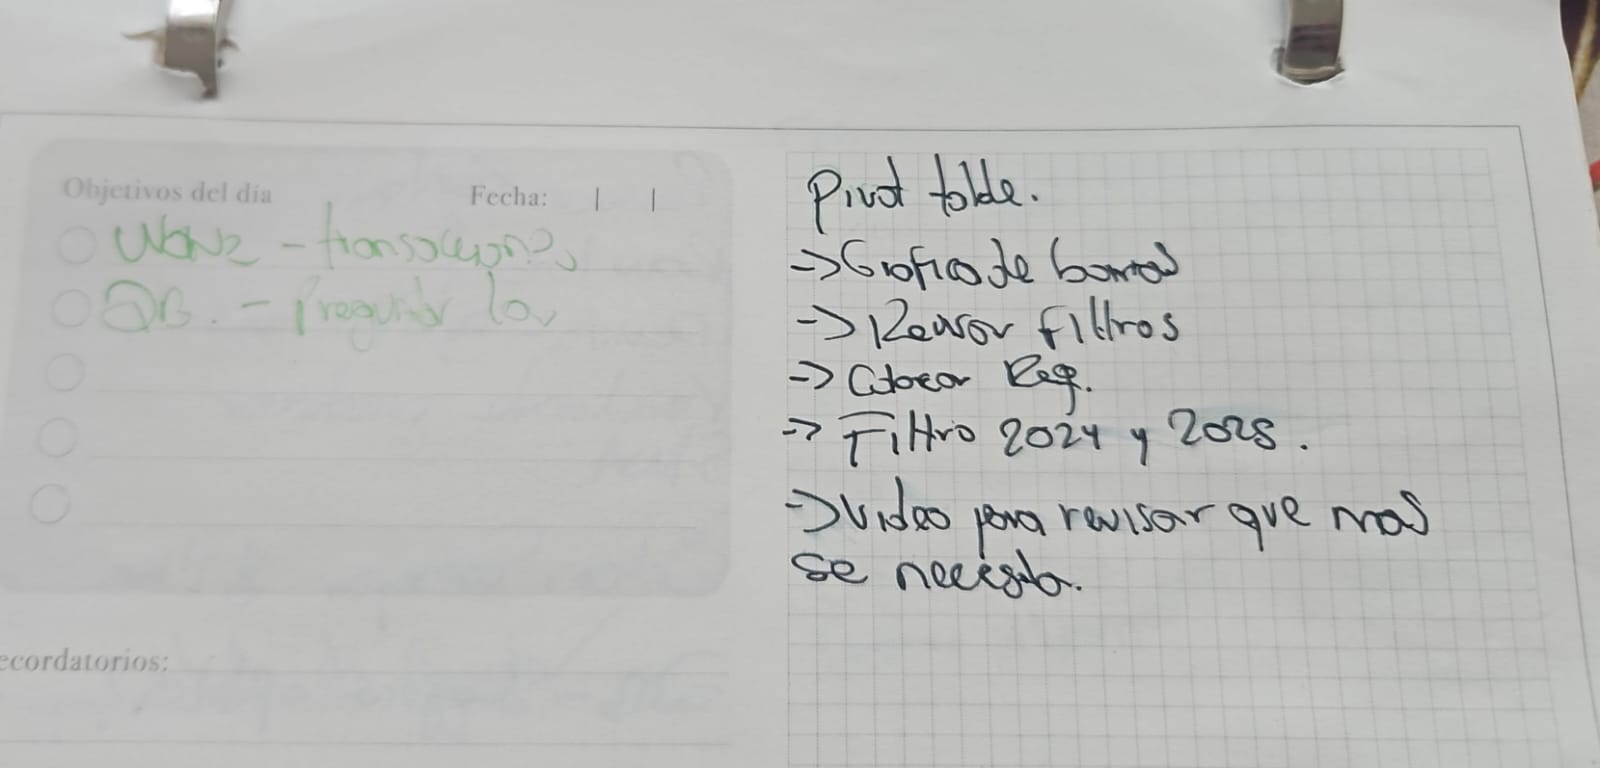 Objetivos del día Fecha: | |
- transacciones
QB. - Preguntar
ecordatorios:
Pivot table.
-> Grafico de barras
-> Revisar filtros
-> Colocar Reg.
-> Filtro 2024 y 2025.
-> Video para revisar que mas
se necesita.